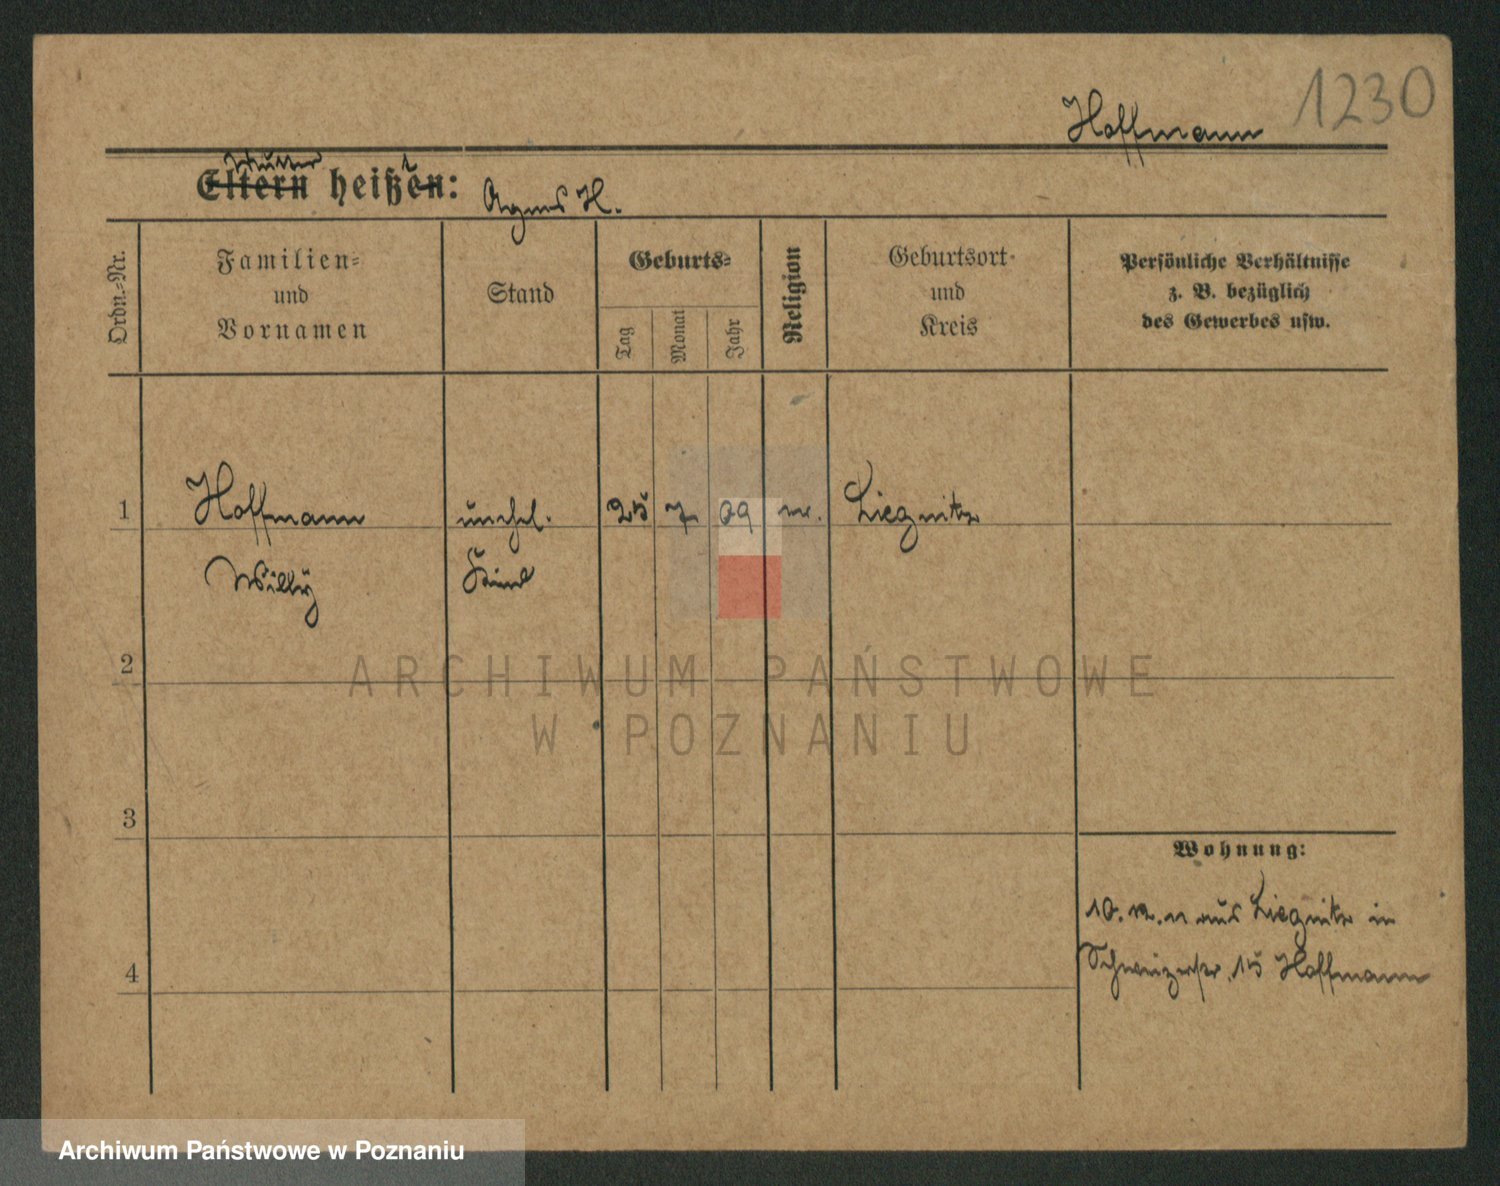 1230
Hoffmann
Mutter
Eltern heißen: t
Agnes H.
Ordn.-Nr.
Familien-
und
Vornamen
Stand
Geburts-
Tag
Monat
Jahr
Religion
Geburtsort
und
Kreis
Persönliche Verhältnisse
z. B. bezüglich
des Gewerbes usw.
1 Hoffmann unehl. 25 7 09 ev. Liegnitz
Willy Kind
2
ARCHIWUM PAŃSTWOWE
W POZNANIU
3
Wohnung:
10. 12. 11 aus Liegnitz in
4 15 Hoffmann
Archiwum Państwowe w Poznaniu